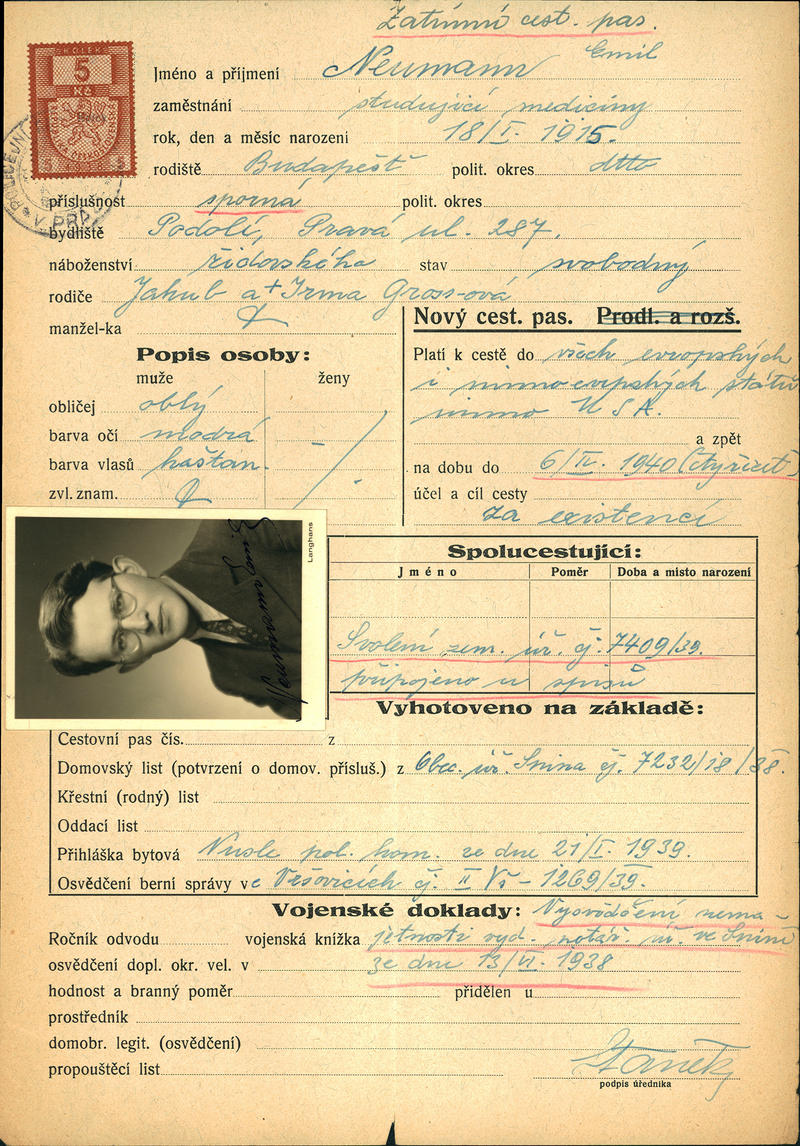 Zatímní cest. pas.
KOLEK
5
Kč
Jméno a příjmení Neumann Emil
zaměstnání studující mediciny
rok, den a měsíc narození 18/I. 1915.
rodiště Budapešť polit. okres dtto
příslušnost sporná polit. okres
bydliště Podolí, Pravá ul. 287.
náboženství židovského stav svobodný
rodiče Jakub a + Irma Gross-ová
manžel-ka
Nový cest. pas. Prodl. a rozš.
Popis osoby:
muže ženy
obličej oblý
barva očí modrá
barva vlasů kaštan.
zvl. znam.
Platí k cestě do všech evropských
i mimoevrpských států
mimo USA.
a zpět
na dobu do 6/II. 1940 (čtyřicet)
účel a cíl cesty
za existencí
Langhans
Neumann Emil
Spolucestující:
Jméno Poměr Doba a místo narození
Svolení zem. úř. čj. 7409/39.
připojeno u spisů
Vyhotoveno na základě:
Cestovní pas čís. z
Domovský list (potvrzení o domov. přísluš.) z Obec. úř. Snina čj. 7232/18/38.
Křestní (rodný) list
Oddací list
Přihláška bytová Nusle pol. kom. ze dne 21/I. 1939.
Osvědčení berní správy ve Vršovicích čj. II Vš - 1269/39.
Vojenské doklady: Vysvědčení nema-
Ročník odvodu vojenská knížka jetnosti vyd. notář. úř. ve Snině
osvědčení dopl. okr. vel. v ze dne 13/VI. 1938
hodnost a branný poměr přidělen u
prostředník
domobr. legit. (osvědčení)
propouštěcí list
Staněk
podpis úředníka